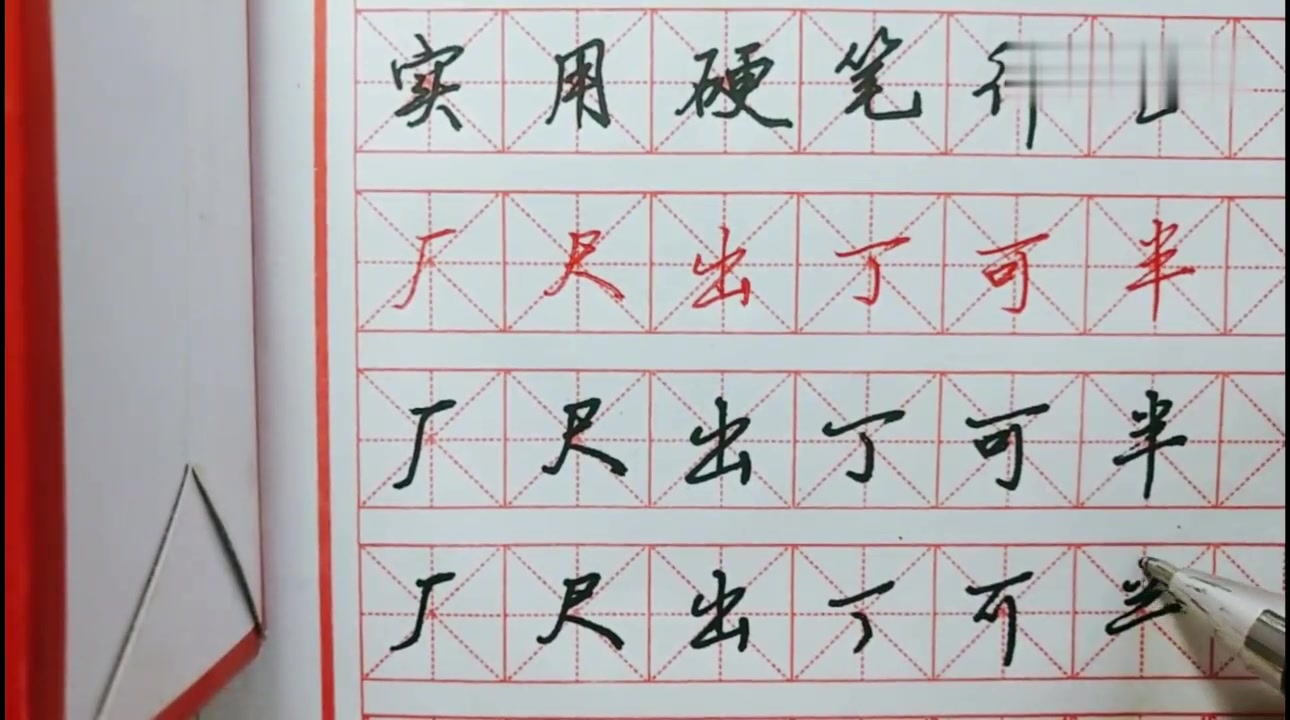 实用硬笔行
厂尺出丁可半
厂尺出丁可半
厂尺出丁可